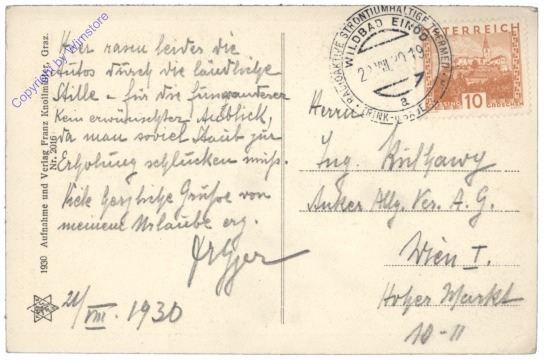 Hier rasen leider die
Autos durch die ländliche
Stille – für die
Kein erwünschter Anblick,
da man soviel Staub zur
Erholung schlucken muß.
Viele herzliche Grüße von
meinem Urlaube erg.
21/VIII. 1930
1930 Aufnahme und Verlag Franz Knollmüller, Graz.
Nr. 2016
Copyright by Wimstore
RADIOAKTIVE STRONTIUMHALTIGE THERMEN
WILDBAD EINÖD
a
TRINK-
ÖSTERREICH
10
GROSCHEN
Herrn
Ing.
Anker Allg. Ver. A. G.
Wien I.
Hoher Markt
10-11